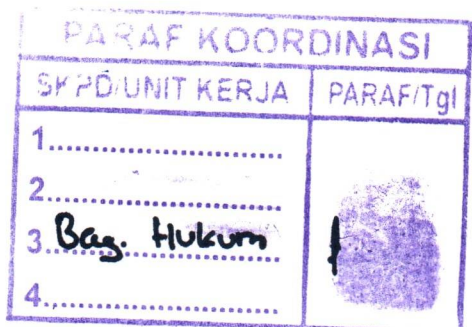 PARAF KOORDINASI
SKPD/UNIT KERJA PARAF/Tgl
1..............................
2..............................
3. Bag. Hukum
4..............................